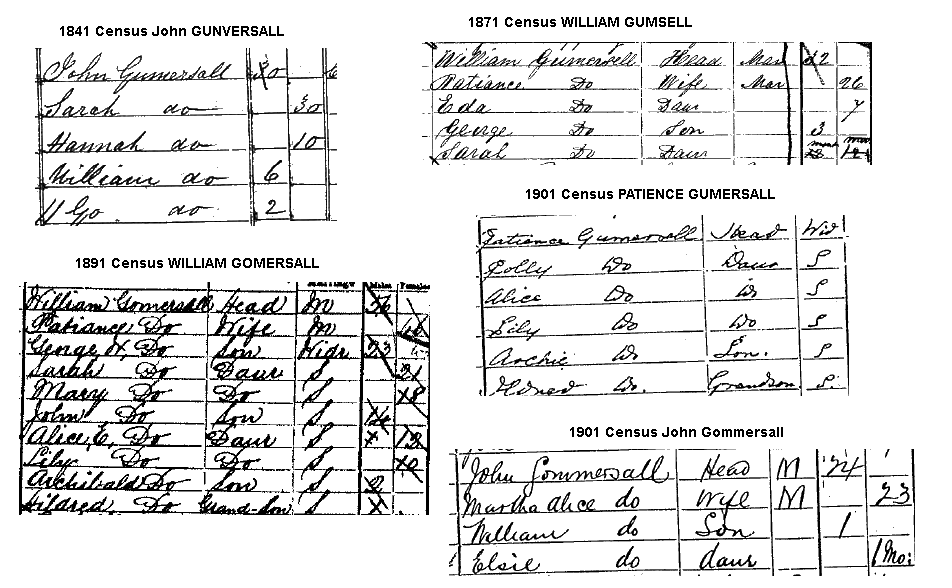 1841 Census John GUNVERSALL
John Gumersall 30
Sarah do 30
Hannah do 10
William do 6
do 2
1871 Census WILLIAM GUMSELL
William Gumersell Head Mar
Patiance Do Wife Mar 26
Do Daur 7
George Do Son 3
Sarah Do Daur
1901 Census PATIENCE GUMERSALL
Patience Gumersall Head Wid
Polly Do Daur S
Alice Do Do S
Lily Do Do S
Archie Do Son. S
Do. Grandson S
1891 Census WILLIAM GOMERSALL
Males Females
William Gomersall Head M
Patiance Do Wife M
George W, Do Son Widr 23
Sarah Do Daur S 21
Mary Do Do S 18
John Do Son S
Alice, E, Do Daur S
Lily Do Do S 10
Archibald Do Son S
Hildred, Do Grand-son S
1901 Census John Gommersall
John Gommersall Head M 24
Martha Alice do Wife M 23
William do Son 1
Elsie do daur 1 Mo: